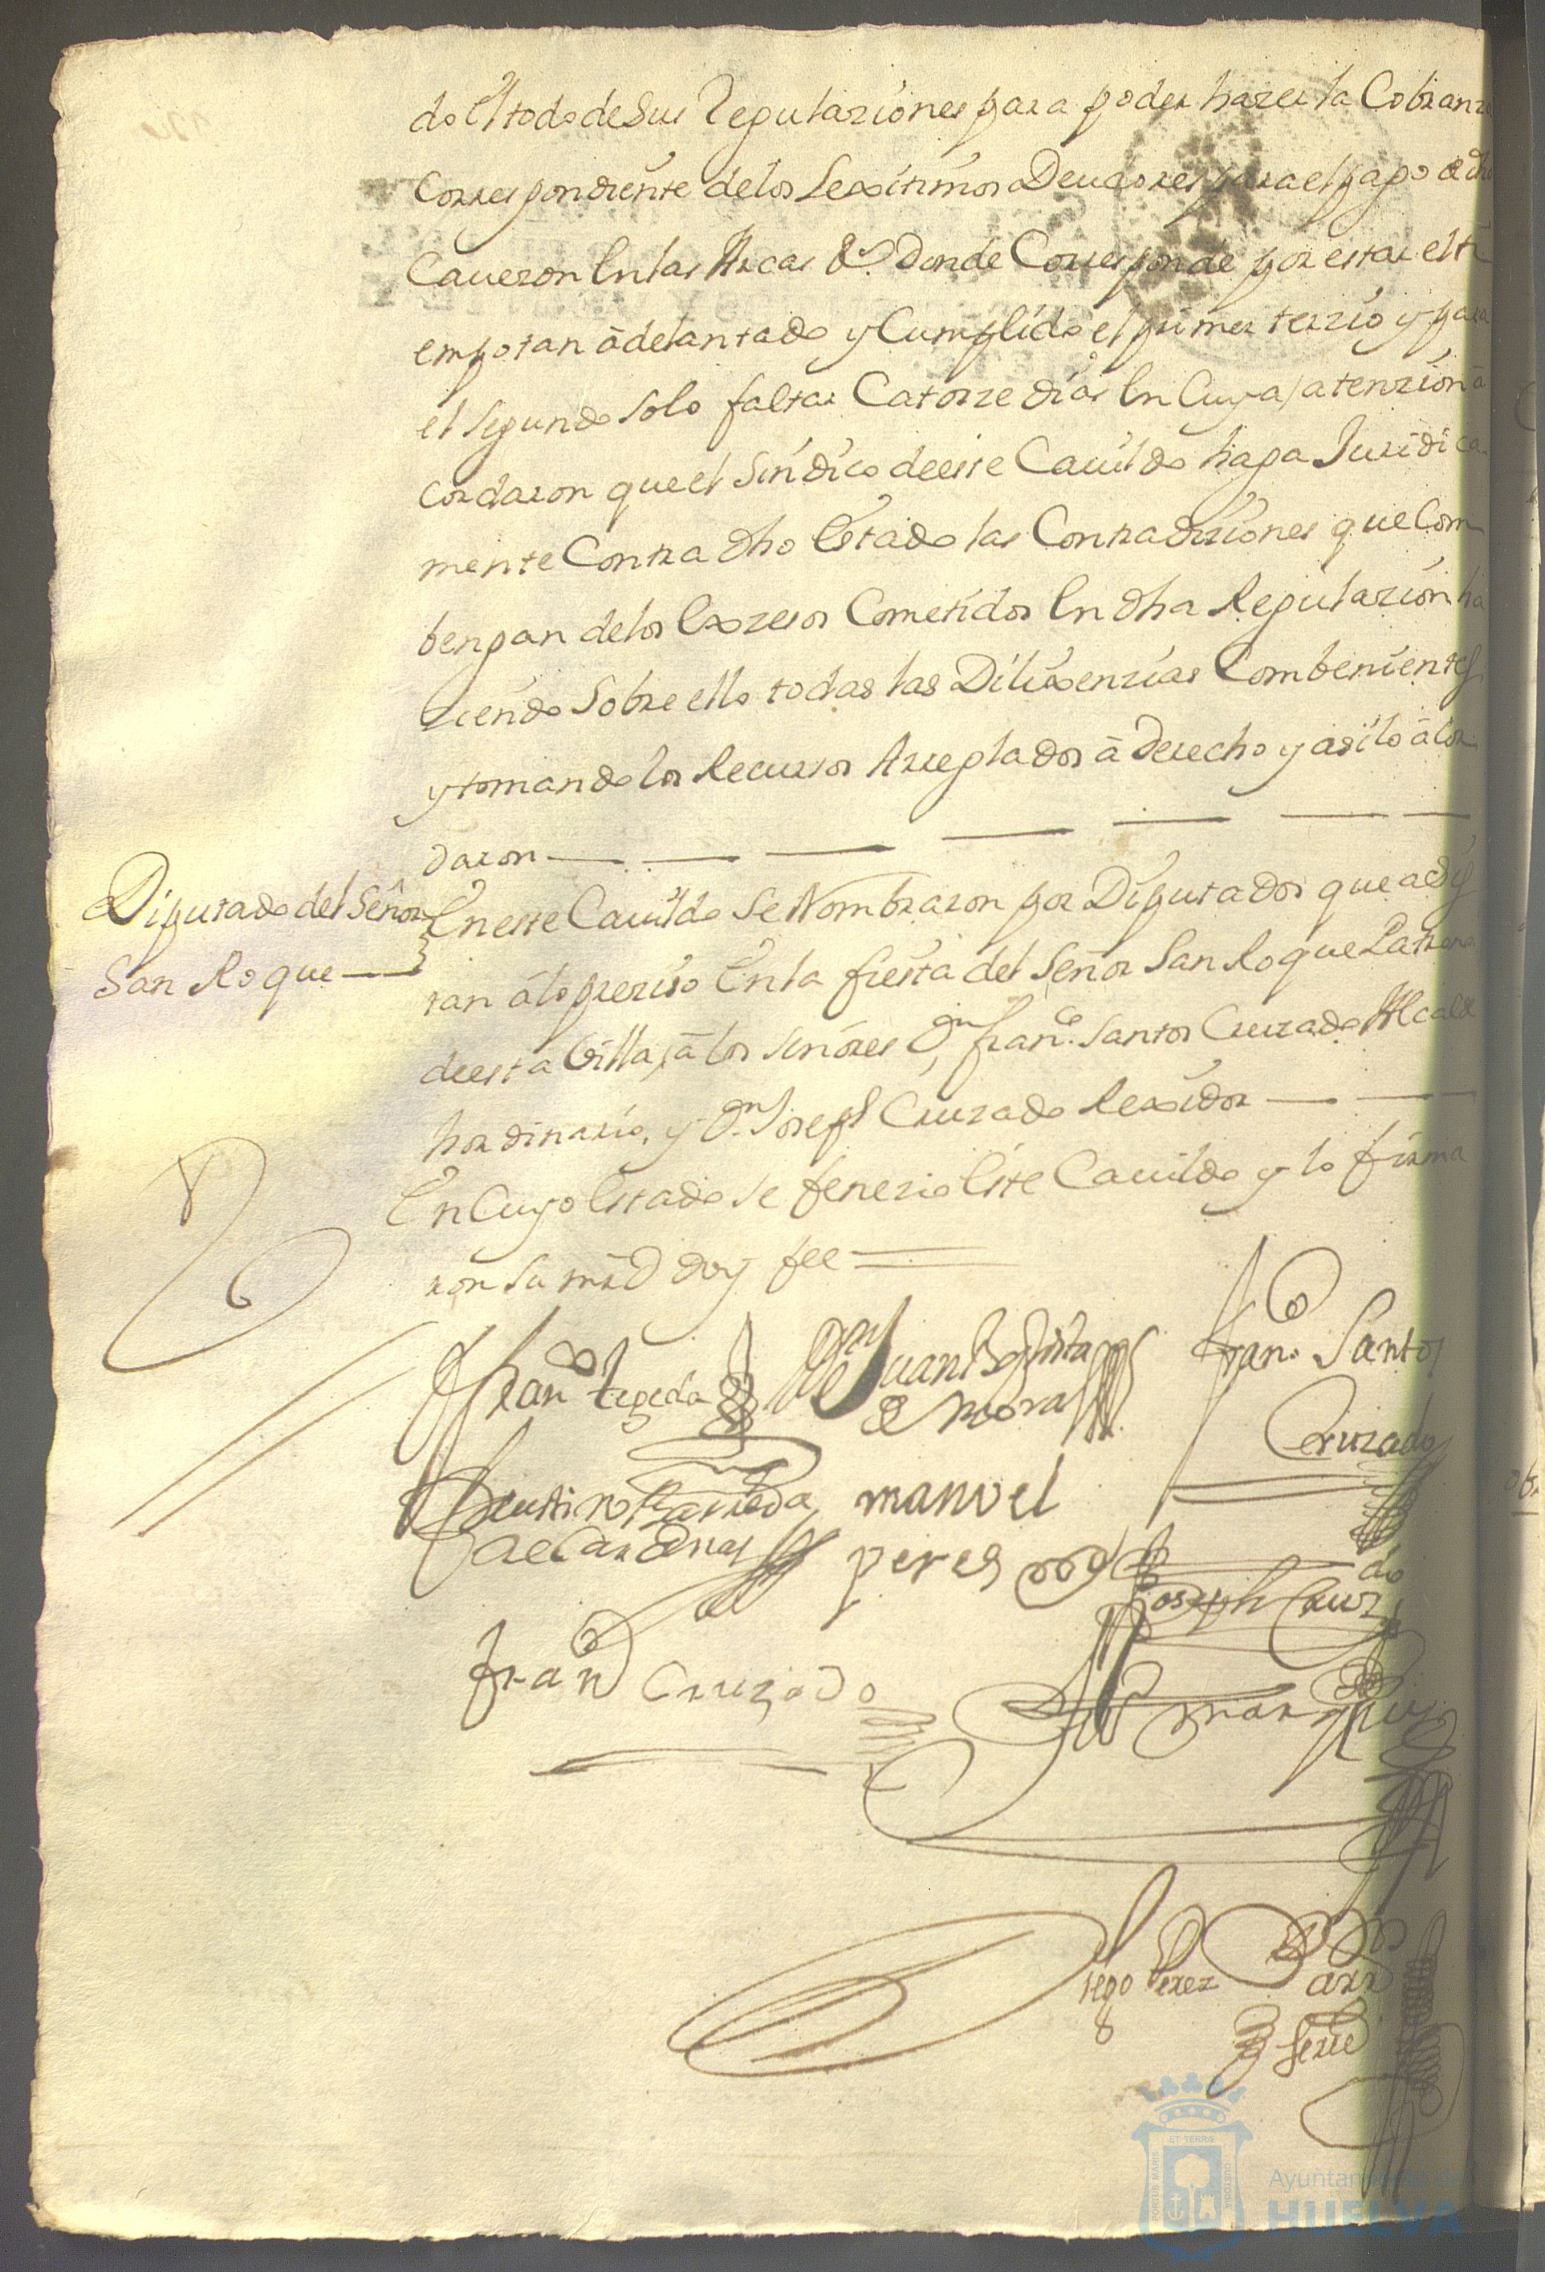 do el todo de sus Regulaziones para poder hazer la Cobranza
Correspondiente de los Lexitimos Deudores para el pago de dho
Caueron en las Arcas &ª donde Corresponde por estar el ti
empo tan adelantado y Cumplido el primer terzio y para
el segundo solo faltar Catorze dias en Cuya atenzion a
cordaron que el Sindico de este Cauildo haga Juridica
mente Contra dho Estado las Contradiziones que Com
bengan de los exzesos Cometidos en dha Regulazion ha
ziendo sobre ello todas las Dilixenzias Combenientes
y tomando los Recursos Arreglados a derecho y asi lo acor
daron
Diputado del Señor
San Roque
En este Cauildo se Nombraron por Diputados que adis
tan a lo preziso en la fiesta del Señor San Roque Patrono
de esta Villa, a los señores Dn, franco. Santos Cruzado Alcalde
hordinario, y Dn. Joseph Cruzado Rexidor
En Cuyo Estado se fenezio este Cauildo y lo firma
ron su mrd doy fee
Franco Tegeda
Dn Juan Baptista
de Mora
Franco. Santos
Cruzado
Faustino Barreda
de Cardenas
manuel
peres
Joseph Cruzdo
Franco Cruzado
Marquez
Diego Perez